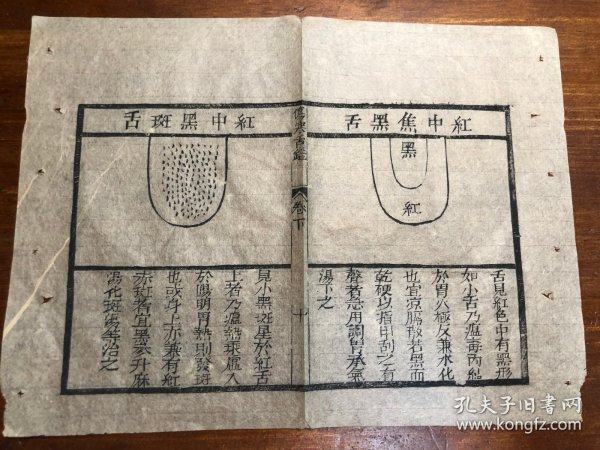 紅中焦黑舌
黑
紅
舌見紅色中有黑形
如小舌乃瘟毒內結
於胃火極反兼水化
也宜凉膈散若黑而
乾硬以指甲刮之有
聲者急用調胃承氣
湯下之
傷寒舌鑑
卷下
十
紅中黑斑舌
見小黑斑星於紅舌
上者乃瘟熱乘虛入
於陽明胃熱則發斑
也或身上亦兼有紅
赤斑者宜黑參升麻
湯化斑湯等治之
孔夫子旧書网
www.kongfz.com